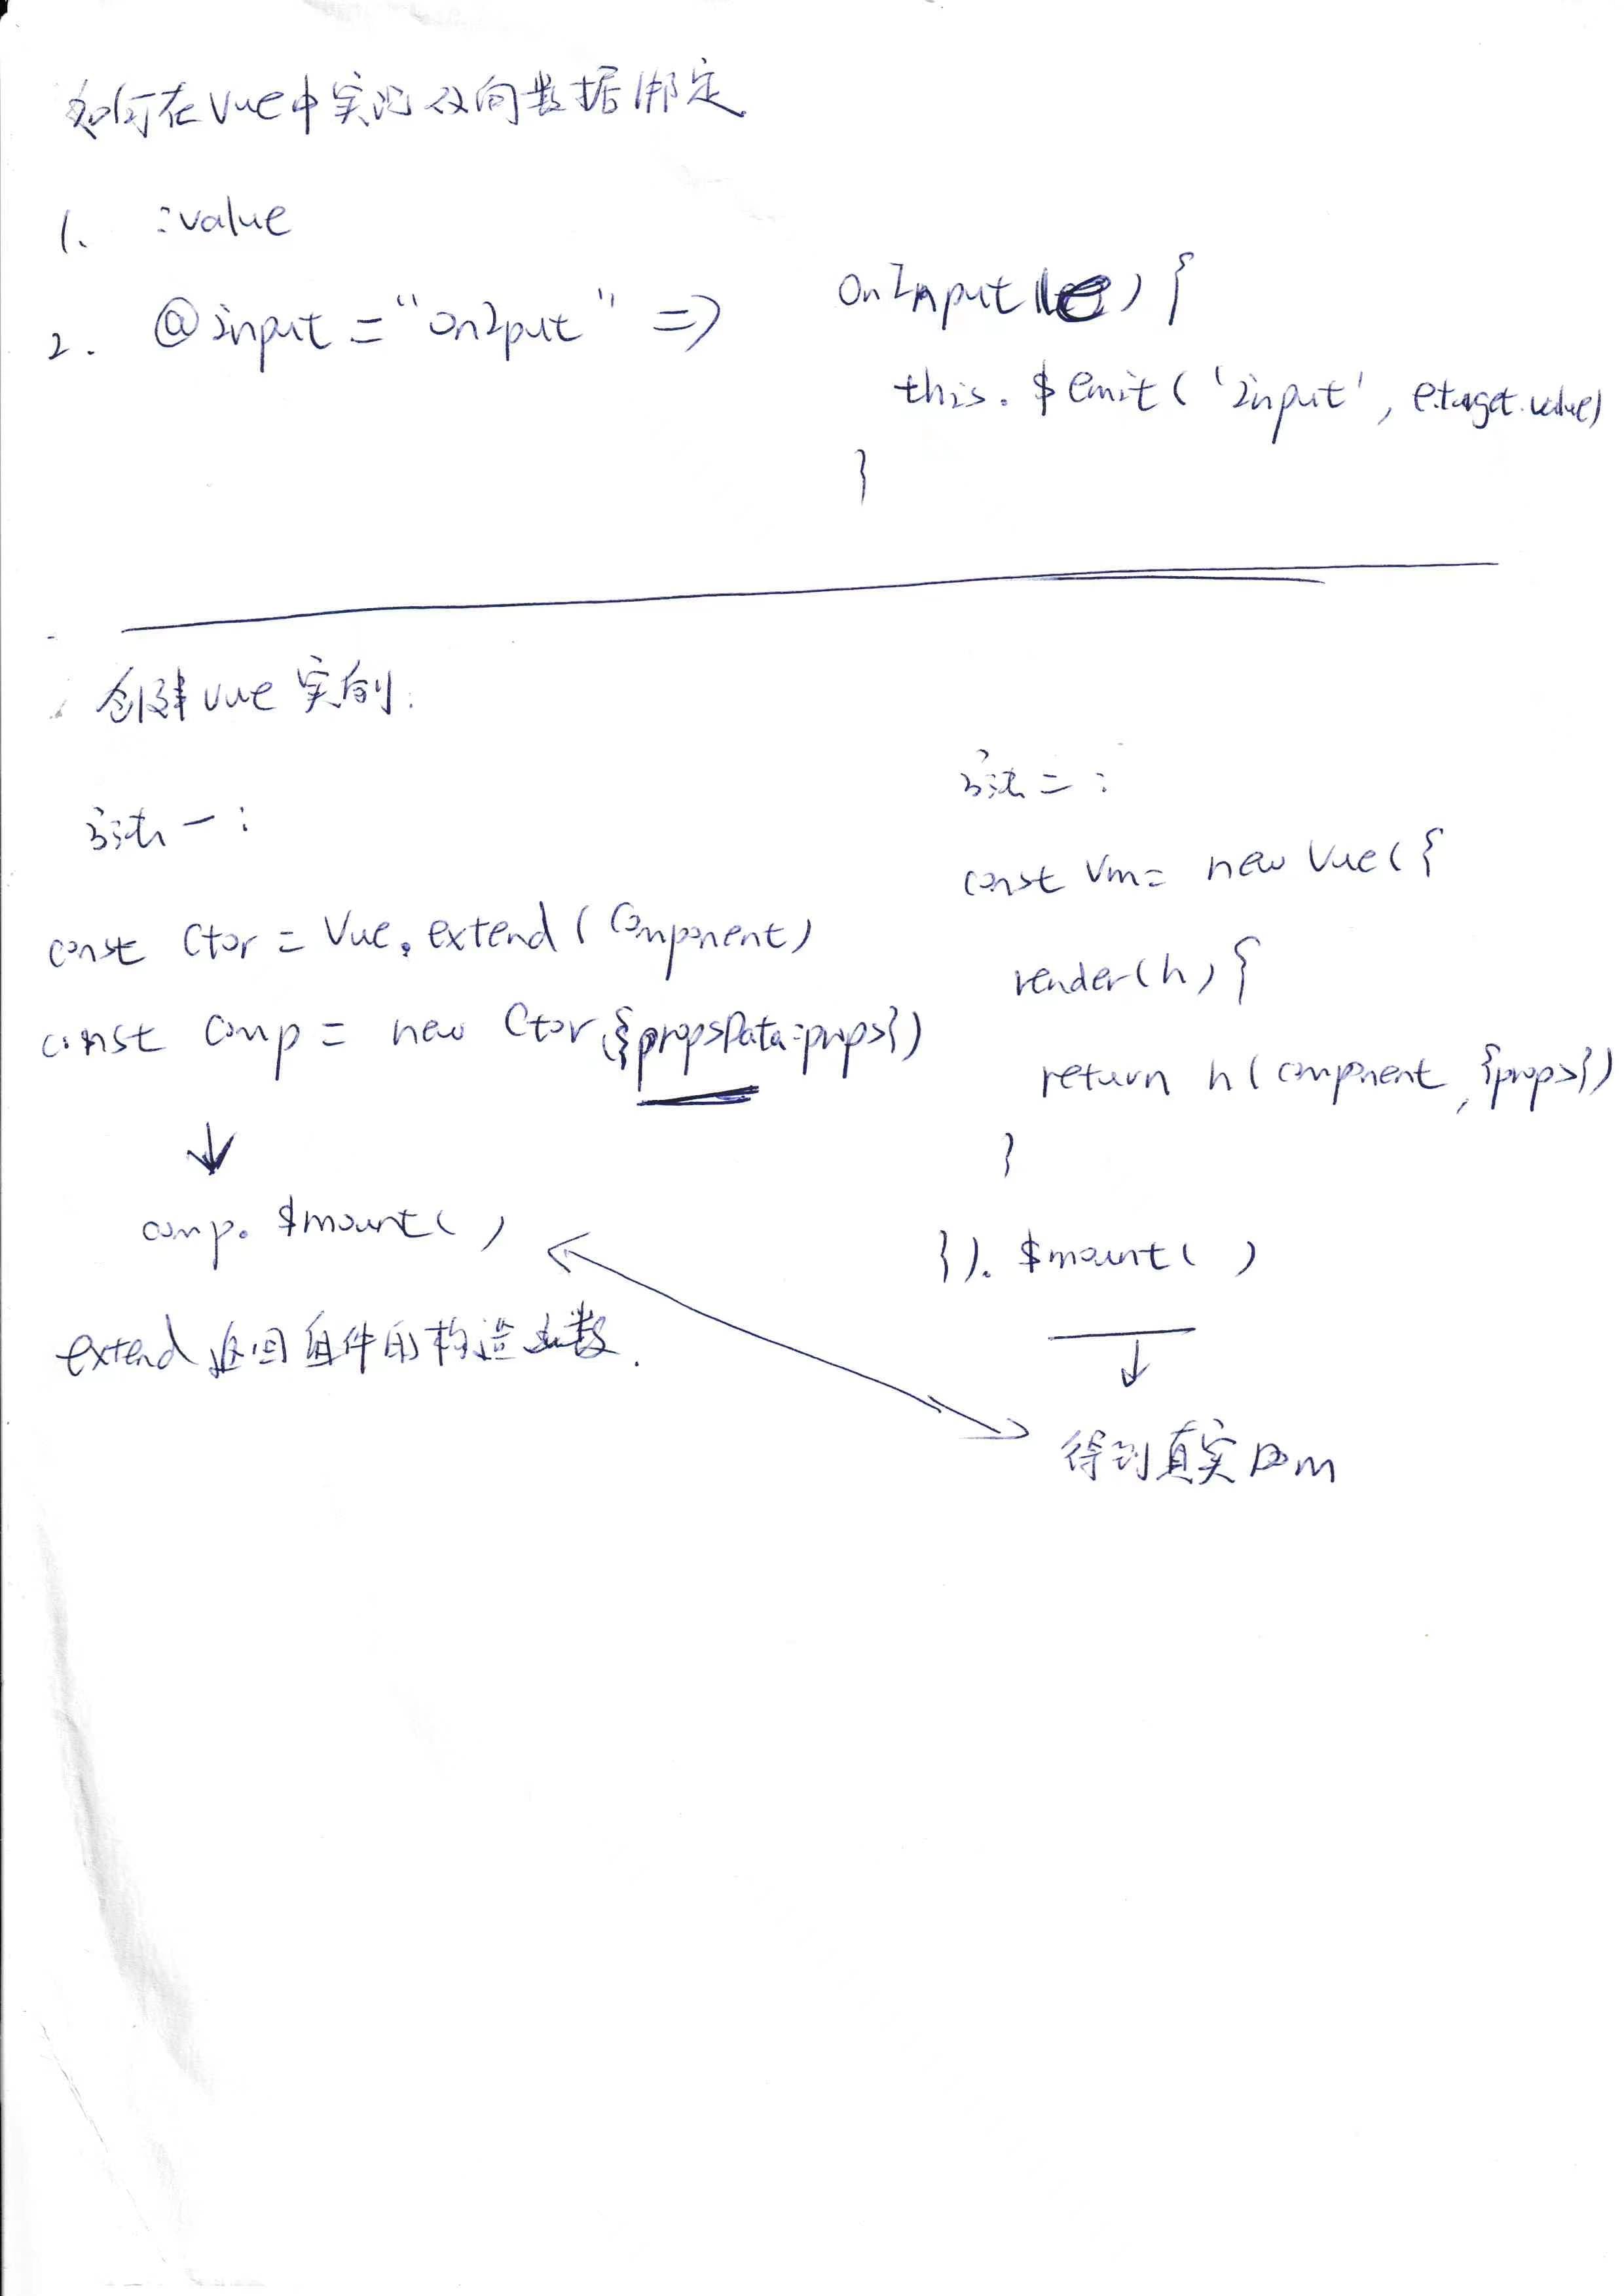 如何在Vue中实现双向数据绑定
1. :value
2. @input = "onIput" =>
onInput(e) {
this.$emit('input', e.target.value)
}
创建Vue实例:
方法一:
const Ctor = Vue.extend(Component)
const comp = new Ctor({propsData:props})
↓
comp.$mount()
extend 返回组件的构造函数.
方法二:
const vm = new Vue({
render(h) {
return h(component, {props})
}
}).$mount()
↓
得到真实Dom